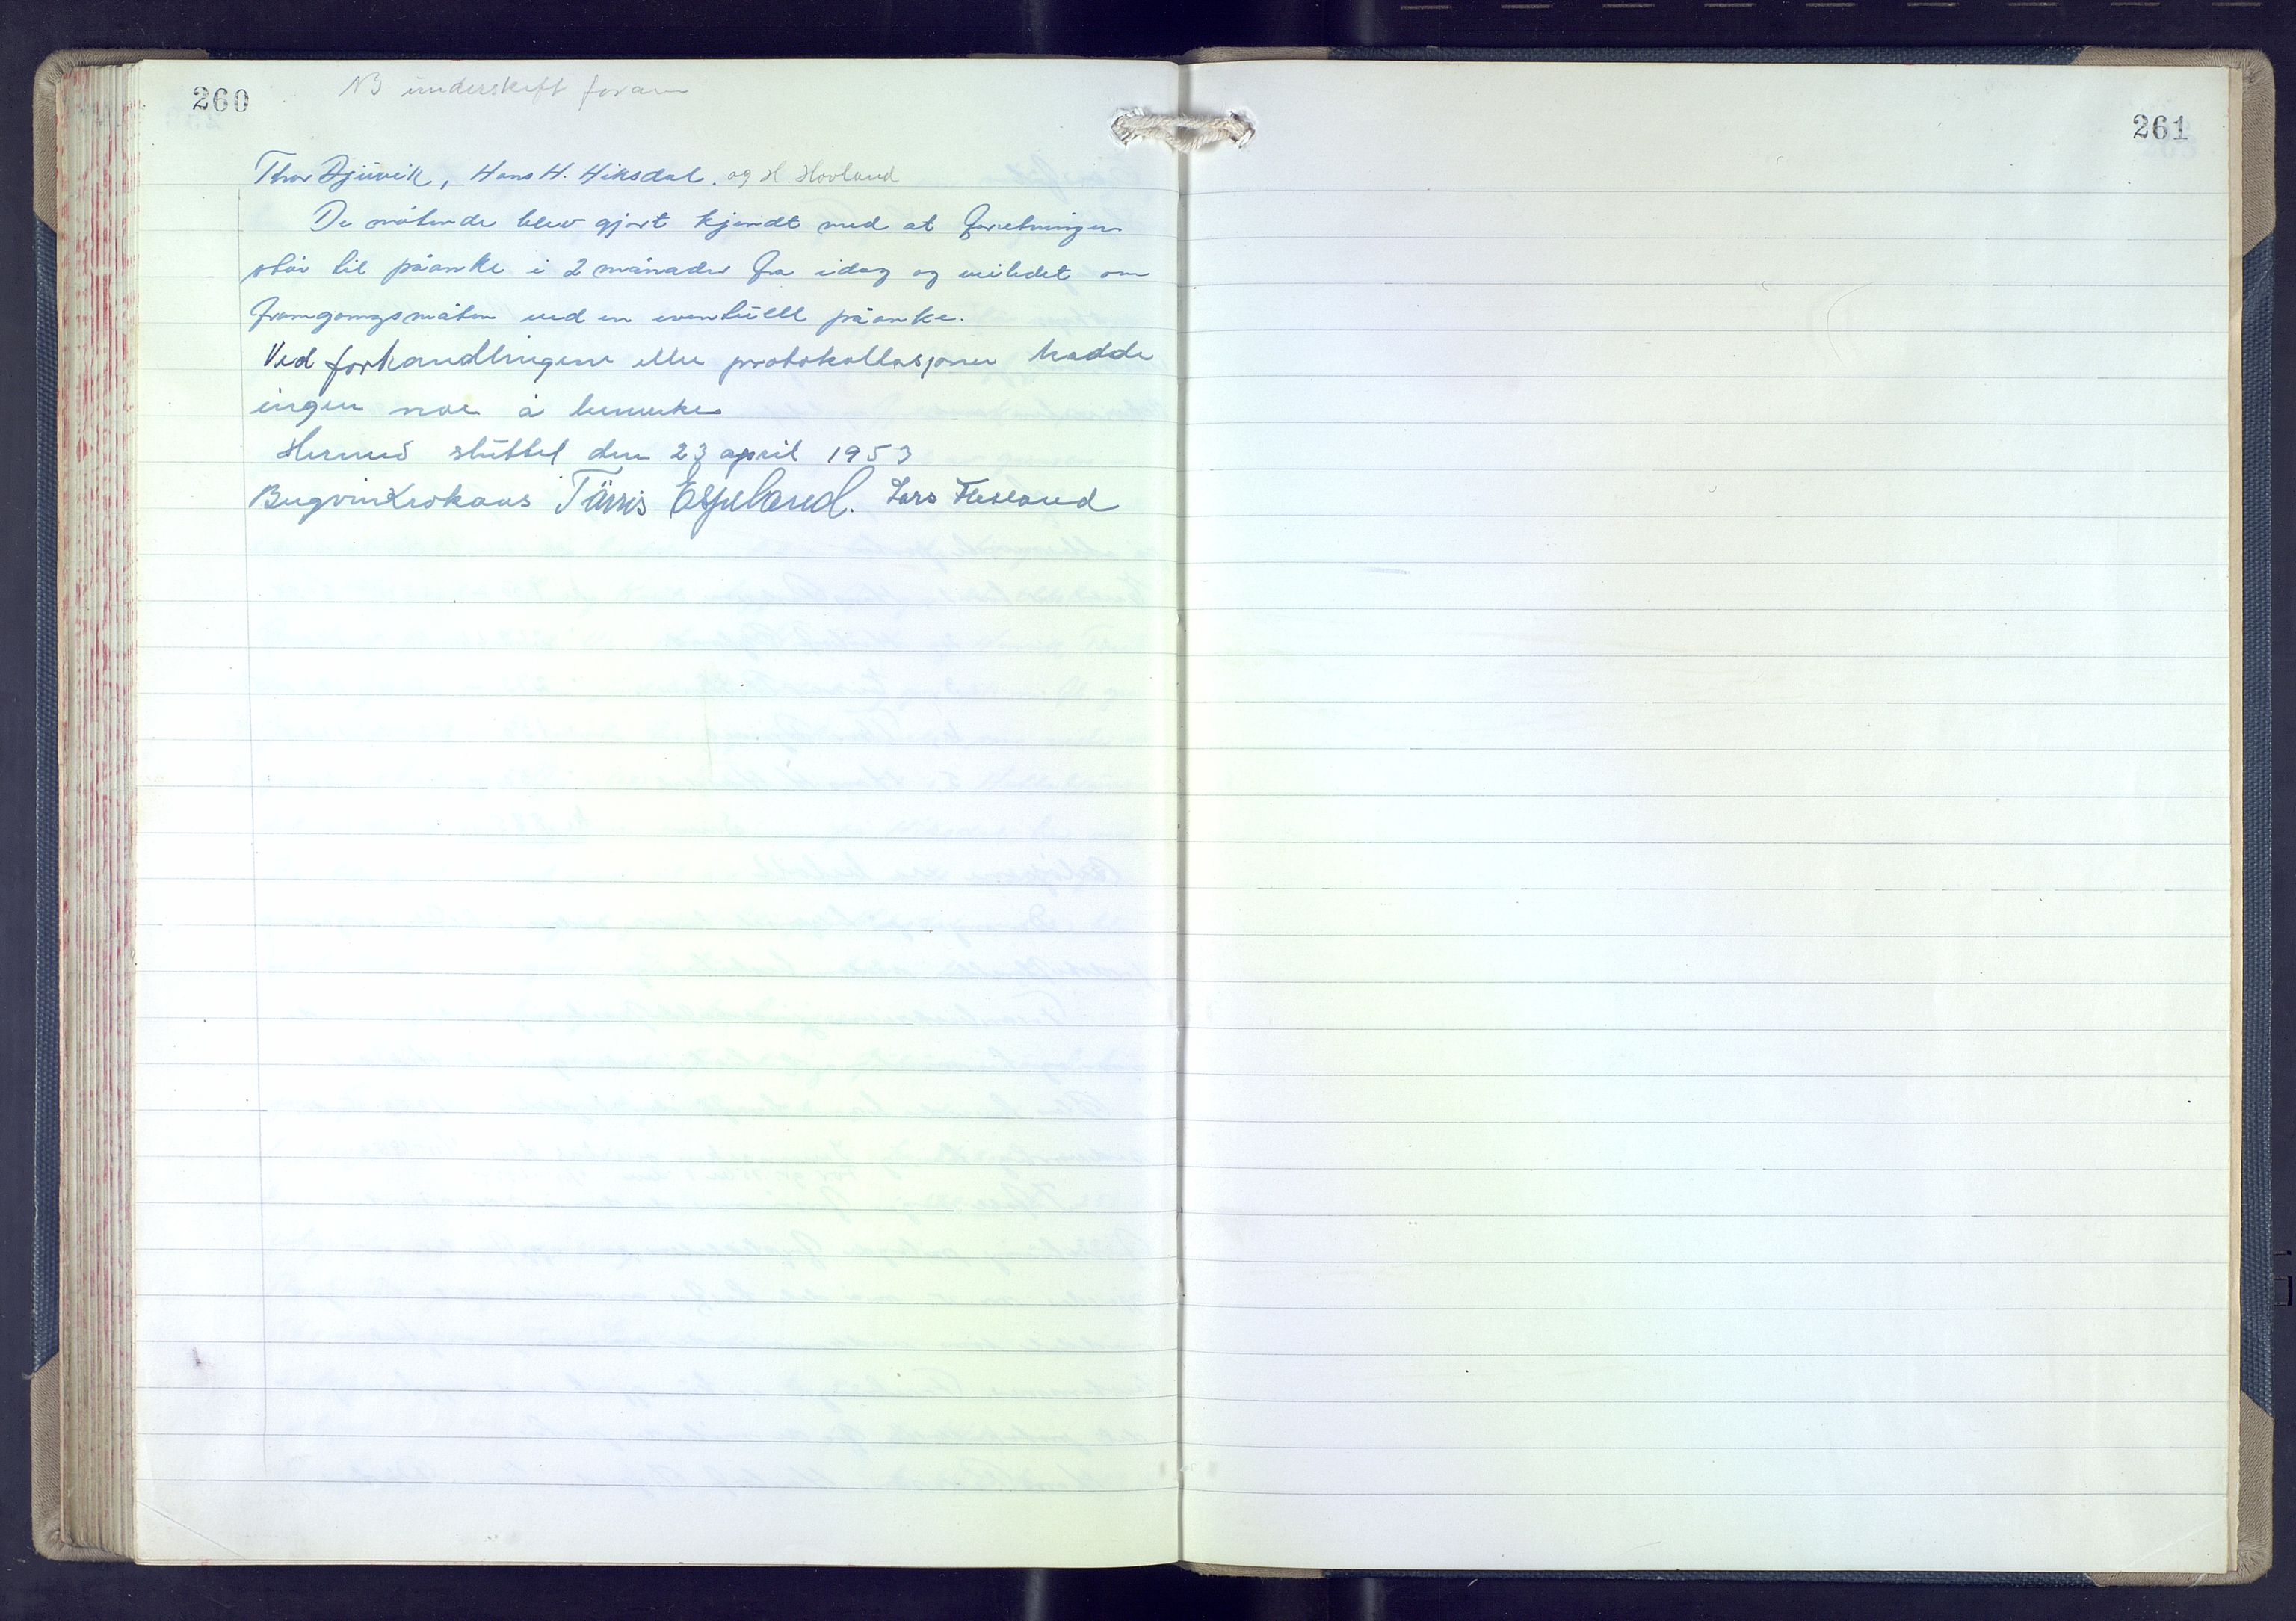 260
NB underskrift foran
Thor Djuvik, Hans H. Hiksdal. og H. Hovland
De møtende blev gjort kjendt med at forretningen
står til påanke i 2 månader fra idag og veiledet om
framgangsmåten ved en eventuell påanke.
Ved forhandlingene eller protokollasjonen hadde
ingen noe å bemerke
Hermed sluttet den 23 april 1953
Krokaas Espeland. Lars Flesland
261